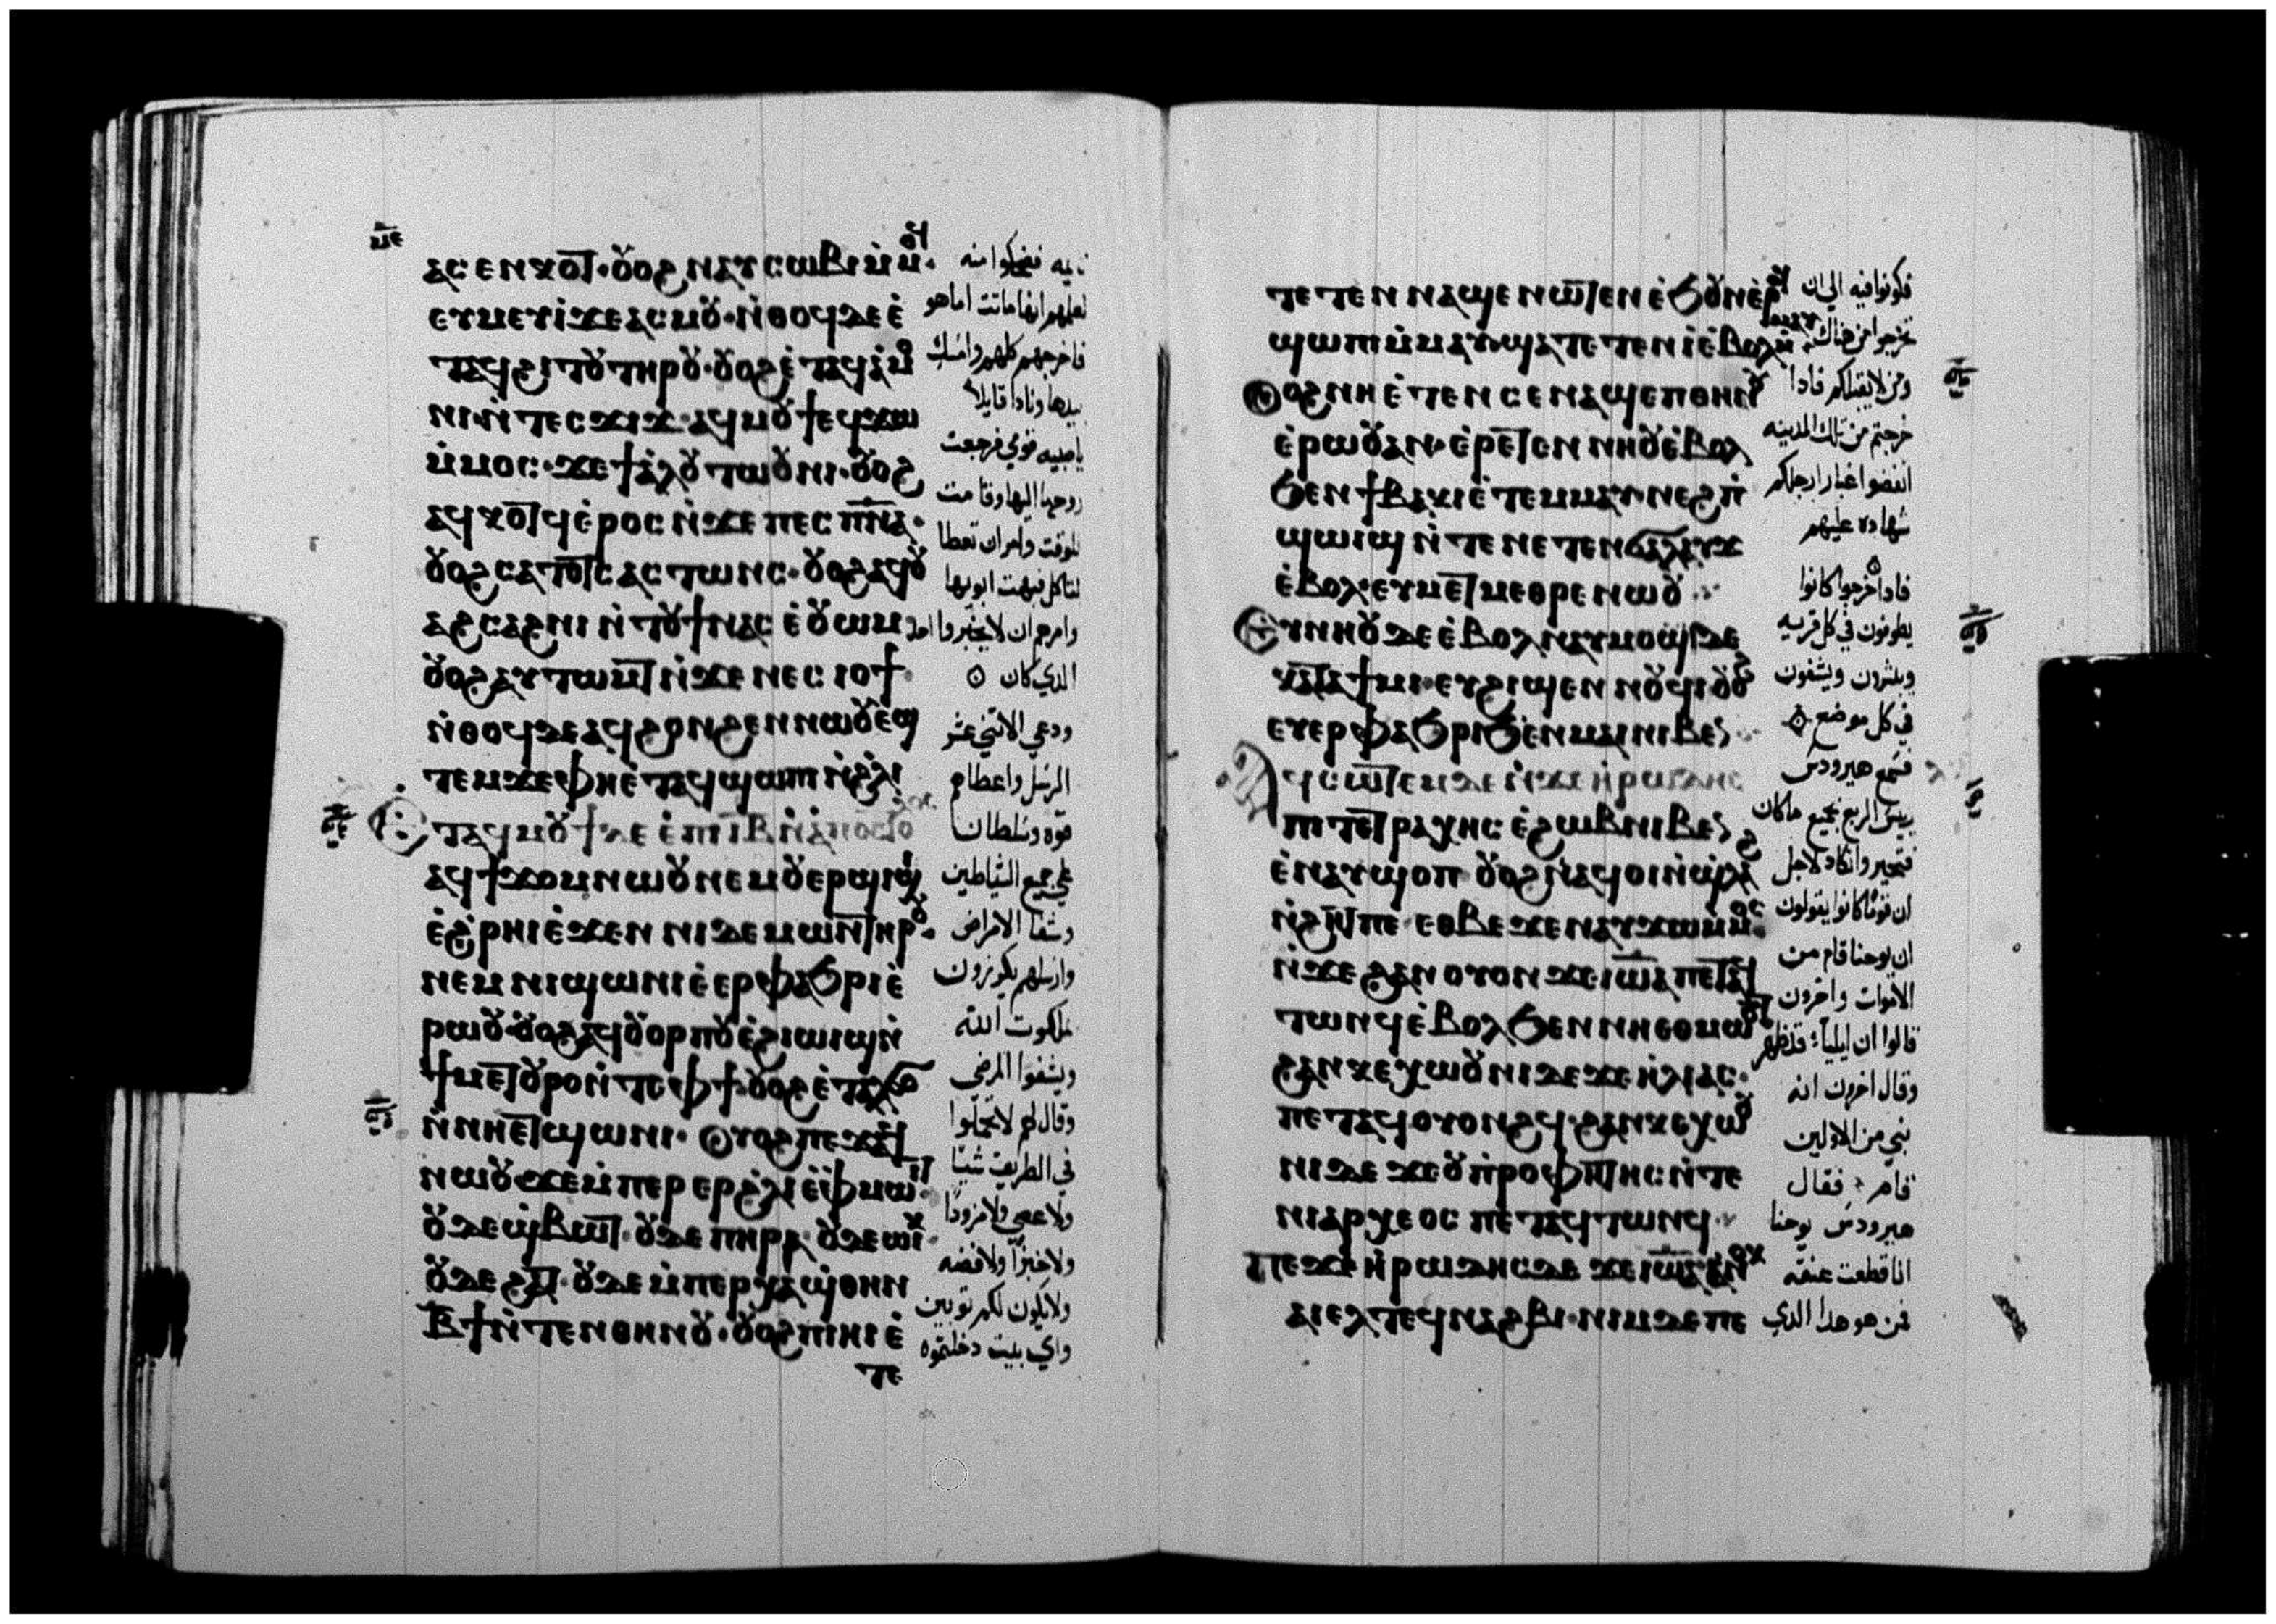 ⲁⲥⲉⲛⲕⲟⲧ · ⲟⲩⲟϩ ⲛⲁⲩⲥⲱⲃⲓ ⲙ̀ⲙⲟϥ ·
ⲉⲩⲙⲉⲩⲓ̀ ϫⲉ ⲁⲥⲙⲟⲩ · ⲛ̀ⲑⲟϥ ⲇⲉ ⲉ̀
ⲧⲁϥϩⲓⲧⲟⲩ ⲧⲏⲣⲟⲩ · ⲟⲩⲟϩ ⲉ̀ⲧⲁϥⲁ̀ⲙⲟ
ⲛⲓ ⲛ̀ⲧⲉⲥϫⲓϫ · ⲁϥⲙⲟⲩϯ ⲉϥϫⲱ
ⲙ̀ⲙⲟⲥ · ϫⲉ ϯⲁ̀ⲗⲟⲩ ⲧⲱⲟⲩⲛⲓ · ⲟⲩⲟϩ
ⲁϥⲕⲟⲧϥ ⲉ̀ⲣⲟⲥ ⲛ̀ϫⲉ ⲡⲉⲥⲡⲛⲁ̅ ·
ⲟⲩⲟϩ ⲥⲁⲧⲟⲧⲥ ⲁⲥⲧⲱⲛⲥ · ⲟⲩⲟϩ ⲁϥⲟⲩ
ⲁϩⲥⲁϩⲛⲓ ⲛ̀ⲧⲟⲩϯ ⲛⲁⲥ ⲉ̀ⲟⲩⲱⲙ
ⲟⲩⲟϩ ⲁⲩⲧⲱⲙⲧ ⲛ̀ϫⲉ ⲛⲉⲥⲓⲟϯ ·
ⲛ̀ⲑⲟϥ ⲇⲉ ⲁϥϩⲟⲛϩⲉⲛ ⲛⲱⲟⲩ ⲉ̀ϣ
ⲧⲉⲙϫⲉ ⲫⲏ ⲉ̀ⲧⲁϥϣⲱⲡⲓ ⲛ̀ϩⲗⲓ
ⲉⲧⲁϥⲙⲟⲩϯ ⲇⲉ ⲉ̀ⲡⲓⲓ̅ⲃ̅ ⲛ̀ⲁ̀ⲡⲟⲥⲧⲟⲗⲟⲥ
ⲁϥϯϫⲟⲙ ⲛⲱⲟⲩ ⲛⲉⲙ ⲟⲩⲉⲣϣⲓϣⲓ
ⲉ̀ϩ̀ⲣⲏⲓ ⲉ̀ϫⲉⲛ ⲛⲓⲇⲉⲙⲱⲛ ⲧⲏⲣⲟⲩ ·
ⲛⲉⲙ ⲛⲓϣⲱⲛⲓ ⲉ̀ⲉⲣⲫⲁϧⲣⲓ ⲉ̀
ⲣⲱⲟⲩ · ⲟⲩⲟϩ ⲁϥⲟⲩⲟⲣⲡⲟⲩ ⲉ̀ϩⲓⲱⲓϣ ⲛ̀
ϯⲙⲉⲧⲟⲩⲣⲟ ⲛ̀ⲧⲉ ⲫϯ · ⲟⲩⲟϩ ⲉ̀ⲧⲁⲗϭⲟ
ⲛ̀ⲛⲏⲉⲧϣⲱⲛⲓ · ⲟⲩⲟϩ ⲡⲉϫⲁϥ
ⲛⲱⲟⲩ ϫⲉ ⲙ̀ⲡⲉⲣⲉⲣϩ̀ⲗⲓ ⲉ̀ⲫⲙⲱⲓⲧ ·
ⲟⲩⲇⲉ ϣ̀ⲃⲱⲧ · ⲟⲩⲇⲉ ⲡⲏⲣⲁ · ⲟⲩⲇⲉ ⲱⲓⲕ ·
ⲟⲩⲇⲉ ϩⲁⲧ · ⲟⲩⲇⲉ ⲙ̀ⲡⲉⲣⲭⲁ ϣ̀ⲑⲏⲛ
ⲃ̅ϯ ⲛ̀ⲧⲉⲛⲑⲏⲛⲟⲩ · ⲟⲩⲟϩ ⲡⲓⲏⲓ ⲉ̀
ⲧⲉ
فضحكوا منه
لعلمهم انها ماتت اما هو
فاخرجهم كلهم وامسك
بيدها ونادا قايلا
ياصبيه قومي فرجعت
روحها اليها وقامت
للوقت وامر ان تعطا
لتاكل فبهت ابويها
وامرهم ان لا يخبروا احد
الذي كان
ودعي الاثني عشر
الرسل واعطاهم
قوه وسلطان
علي جميع الشياطين
وشفا الامراض
وارسلهم يكرزون
بملكوت الله
ويشفوا المرضي
وقال لهم لا تحملوا
في الطريق شيا
ولا عصي ولا مزودا
ولا خبزا ولا فضه
ولا يكون لكم ثوبين
واي بيت دخلتموه
ⲧⲉⲧⲉⲛⲛⲁϣⲉⲛⲱⲧⲉⲛ ⲉ̀ϧⲟⲩⲛ ⲉ̀ⲣⲟϥ
ϣⲱⲡⲓ ⲙ̀ⲙⲁⲩ ϣⲁⲧⲉⲧⲉⲛⲓ̀ ⲉ̀ⲃⲟⲗ ⲙ̀ⲙⲁⲩ
ⲟⲩⲟϩ ⲛⲏ ⲉ̀ⲧⲉⲛⲥⲉⲛⲁϣⲉⲡ ⲑⲏⲛⲟⲩ
ⲉ̀ⲣⲱⲟⲩ ⲁⲛ · ⲉ̀ⲣⲉⲧⲉⲛⲛⲏⲟⲩ ⲉ̀ⲃⲟⲗ
ϧⲉⲛ ϯⲃⲁⲕⲓ ⲉ̀ⲧⲉⲙⲙⲁⲩ · ⲛⲉϩ ⲡ̀
ϣⲱⲓϣ ⲛ̀ⲧⲉ ⲛⲉⲧⲉⲛϭⲁⲗⲁⲩϫ
ⲉ̀ⲃⲟⲗ · ⲉⲩⲙⲉⲧⲙⲉⲑⲣⲉ ⲛⲱⲟⲩ
ⲉⲩⲛⲏⲟⲩ ⲇⲉ ⲉ̀ⲃⲟⲗ ⲛⲁⲩⲙⲟϣⲓ ⲇⲉ
ⲕⲁⲧⲁ ϯⲙⲓ · ⲉⲩϩⲓϣⲉⲛⲛⲟⲩϥⲓ ⲟⲩⲟϩ
ⲉⲩⲉⲣⲫⲁϧⲣⲓ ϧⲉⲛ ⲙⲁⲓ ⲛⲓⲃⲉⲛ
ⲁϥⲥⲱⲧⲉⲙ ⲇⲉ ⲛ̀ϫⲉ ⲏⲣⲱⲇⲏⲥ
ⲡⲓⲧⲉⲧⲣⲁⲭⲏⲥ ⲉ̀ϩⲱⲃ ⲛⲓⲃⲉⲛ
ⲉ̀ⲛⲁⲩϣⲟⲡ ⲟⲩⲟϩ ⲛⲁϥⲟⲓ ⲛ̀ϣⲗⲁϩ
ⲛ̀ϩⲏⲧ ⲡⲉ · ⲉⲑⲃⲉ ϫⲉ ⲛⲁⲩϫⲱ ⲙ̀ⲙⲟⲥ
ⲛ̀ϫⲉ ϩⲁⲛⲟⲩⲟⲛ ϫⲉ ⲓⲱ̅ⲁ̅ ⲡⲉⲧⲁϥ
ⲧⲱⲛϥ ⲉ̀ⲃⲟⲗ ϧⲉⲛ ⲛⲏⲉⲑⲙⲱⲟⲩⲧ
ϩⲁⲛⲕⲉⲭⲱⲟⲩⲛⲓ ⲇⲉ ϫⲉ ⲏ̀ⲗⲓⲁⲥ ·
ⲡⲉⲧⲁϥⲟⲩⲟⲛϩϥ · ϩⲁⲛⲕⲉⲭⲱⲟⲩ
ⲛⲓ ⲇⲉ ϫⲉ ⲟⲩⲡ̀ⲣⲟⲫⲏⲧⲏⲥ ⲛ̀ⲧⲉ
ⲛⲓⲁⲣⲭⲉⲟⲥ ⲡⲉⲧⲁϥⲧⲱⲛϥ
ⲡⲉϫⲉ ⲏ̀ⲣⲱⲇⲏⲥ ⲇⲉ ϫⲉ ⲓⲱ̅ⲁ̅ ⲁⲛⲟⲕ
ⲁⲓⲉⲗ ⲧⲉϥⲛⲁϩⲃⲓ · ⲛⲓⲙ ⲇⲉ ⲡⲉ
فكونوا فيه الي ان
تخرجوا من هناك
ومن لا يقبلكم فاذا
خرجتم من تلك المدينه
انفضوا غبار ارجلكم
شهاده عليهم
فاذا خرجوا كانوا
يطوفون في كل قريه
ويبشرون ويشفون
في كل موضع
فسمع هيرودس
رييس الربع بجميع ماكان
فتحير وانكاد لاجل
ان قوما كانوا يقولون
ان يوحنا قام من
الاموات واخرون
قالوا ان ايليا قد ظهر
وقال اخرون انه
نبي من الاولين
قام فقال
هيرودس يوحنا
انا قطعت عنقه
فمن هو هدا الدي